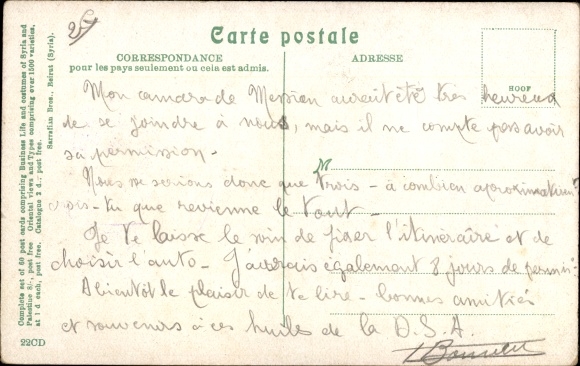 Carte postale
CORRESPONDANCE
pour les pays seulement ou cela est admis.
ADRESSE
HOOF
Complete set of 60 post cards comprising Business Life and costumes of Syria and
Palestine 8/-, post free Oriental views and Types comprising over 1500 varieties.
at 1 d each, post free. Catalogue 3 d.; post free.
Sarrafian Bros., Beirut (Syria).
22CD
Mon camarade aurait été très heureux
de se joindre à nous, mais il ne compte pas avoir
sa permission.
Nous ne serions donc que trois - à combien
crois-tu que revienne le tout -
Je te laisse le soin de fixer l'itinéraire et de
choisir l'auto - J'aurais également 8 jours de
A bientôt le plaisir de te lire - bonnes amitiés
et souvenirs à ces huiles de la D.S.A.